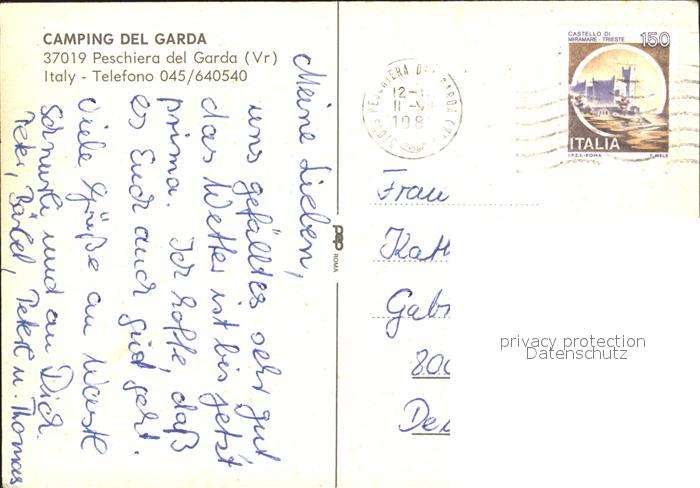 CAMPING DEL GARDA
37019 Peschiera del Garda (Vr)
Italy - Telefono 045/640540
Meine Lieben,
uns gefällt es sehr gut
das Wetter ist bis jetzt
prima. Ich hoffe, daß
es Euch auch gut geht.
Viele Grüße an
Schnurli und an Dich.
Peter, Bärbel, Peter u. Thomas
pep ROMA
37019 PESCHIERA DEL GARDA (VR)
12-
11
198
CASTELLO DI
MIRAMARE - TRIESTE
150
ITALIA
I.P.Z.S. - ROMA T. MELE
Frau
Kath
Gabr
800
Deu
privacy protection
Datenschutz